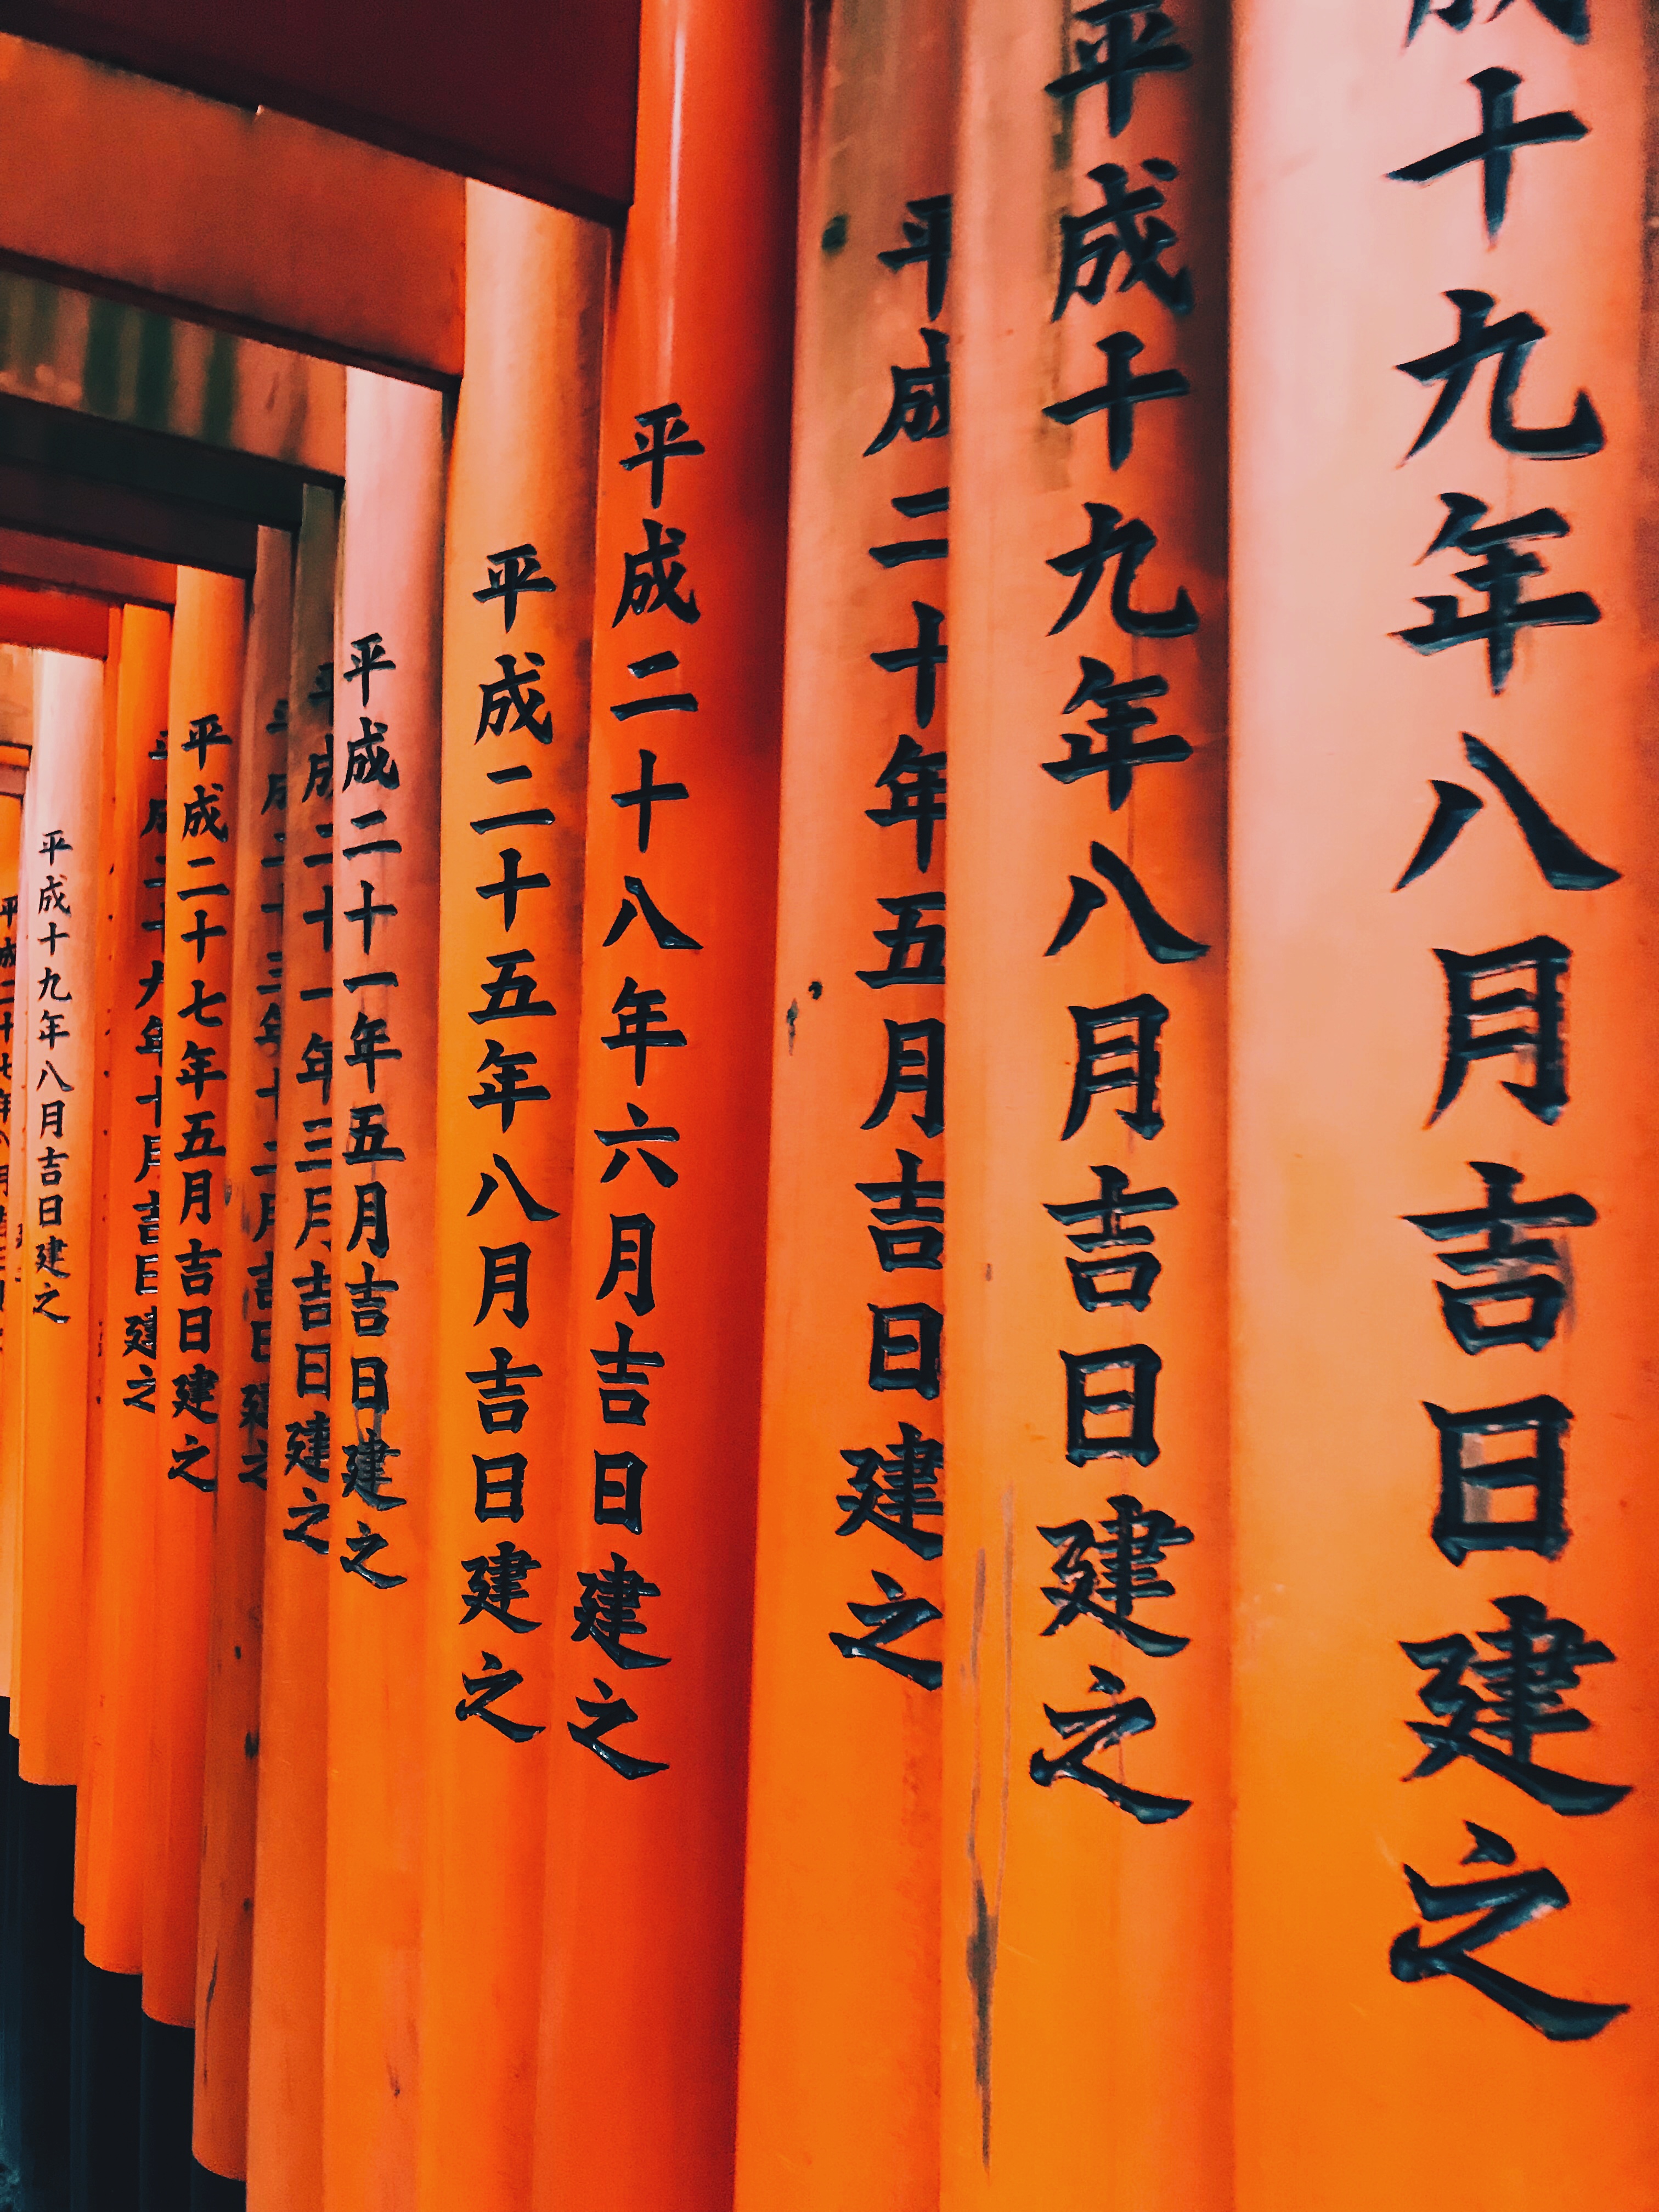 成十九年八月吉日建之
平成十九年八月吉日建之
平成二十年五月吉日建之
平成二十八年六月吉日建之
平成二十五年八月吉日建之
平成二十一年五月吉日建之
平成二十一年三月吉日建之
平成二十三年十二月吉日建之
平成二十七年五月吉日建之
平成二十九年十月吉日建之
平成十九年八月吉日建之